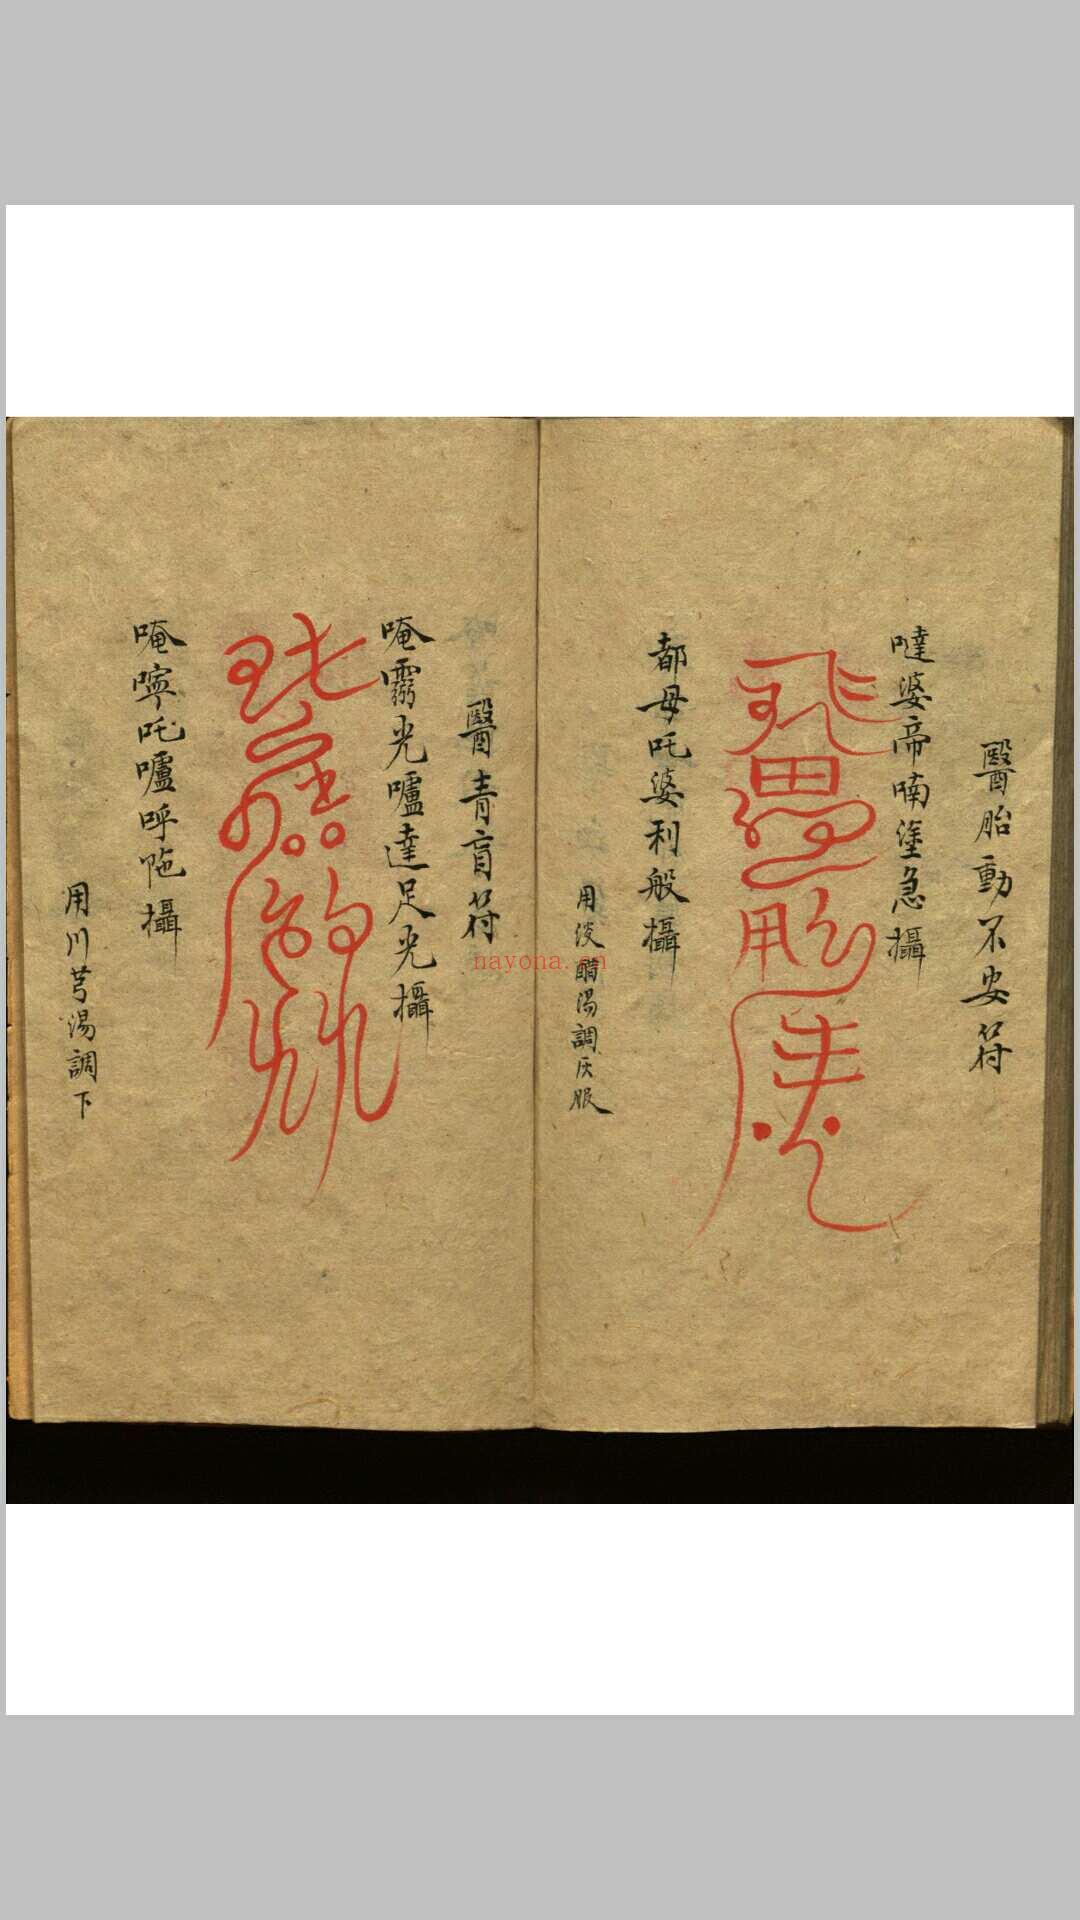 醫胎動不安符
噠婆帝喃塗急攝
都母吒婆利般攝
用淡醋湯調灰服
醫青盲符
唵靈光嚧達足光攝
唵嚀吒嚧呼陁攝
用川芎湯調下
nayona.cn